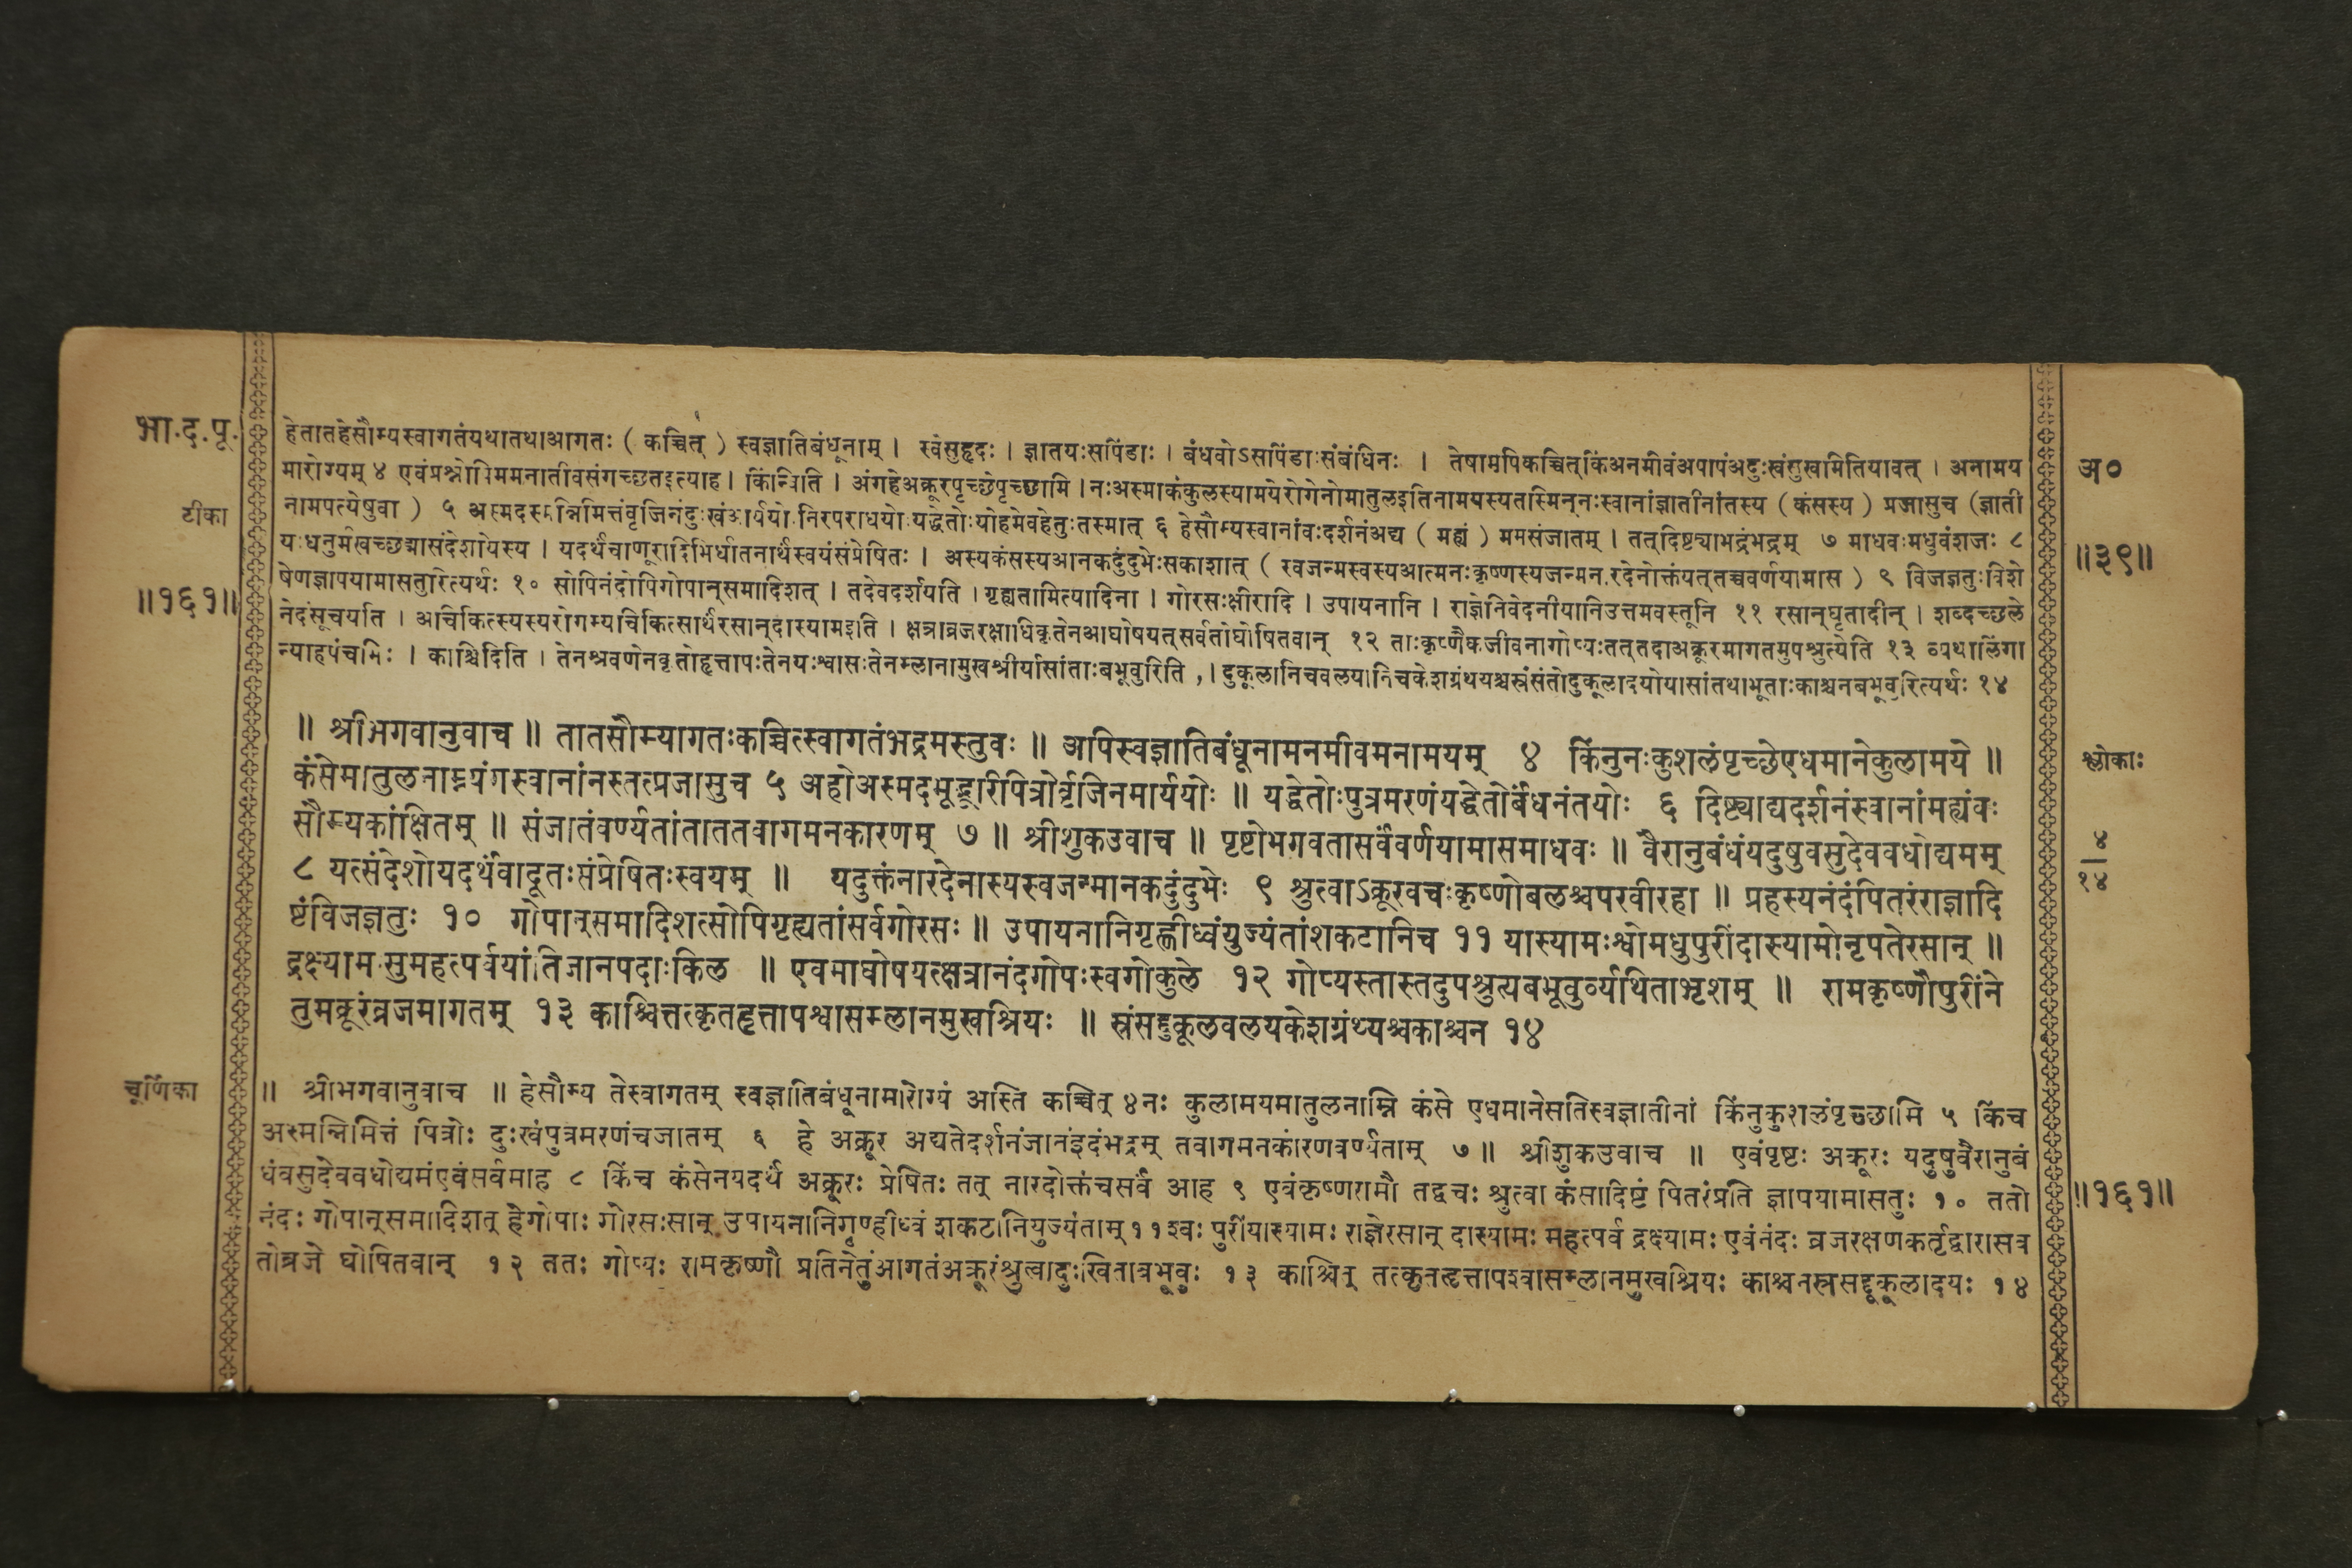 भा.द.पू.
टीका
॥१६१॥
हेतातहेसौम्यस्वागतंयथातथाआगतः ( कच्चित् ) स्वज्ञातिबंधूनाम् । स्वेसुहृदः । ज्ञातयःसपिंडाः । बंधवोऽसपिंडाःसंबंधिनः । तेषामपिकच्चित्किंअनमीवंअपापंअदुःखंसुखमितियावत् । अनामय
मारोग्यम् ४ एवंप्रश्नोपिममनातीवसंगच्छतइत्याह । किंन्विति । अंगहेअक्रूरपृच्छेपृच्छामि । नःअस्माकंकुलस्यामयेरोगेनोमातुलइतिनामयस्यतस्मिन्नःस्वानांज्ञातीनांतस्य ( कंसस्य ) प्रजासुच (ज्ञाती
नामपत्येषुवा ) ५ अस्मदस्मन्निमित्तंवृजिनंदुःखंआर्ययोःनिरपराधयोःयद्धेतोःयोहमेवहेतुःतस्मात् ६ हेसौम्यस्वानांवःदर्शनंअद्य ( मह्यं ) ममसंजातम् । तत्दिष्ट्याभद्रंभद्रम् ७ माधवःमधुवंशजः ८
यःधनुर्मखच्छद्मासंदेशोयस्य । यदर्थंचाणूरादिभिर्घातनार्थंस्वयंसंप्रेषितः । अस्यकंसस्यआनकदुंदुभेःसकाशात् ( स्वजन्मस्वस्यआत्मनःकृष्णस्यजन्मनारदेनोक्तंयत्तच्चवर्णयामास ) ९ विजज्ञतुःविशे
षेणज्ञापयामासतुरित्यर्थः १० सोपिनंदोपिगोपान्समादिशत् । तदेवदर्शयति । गृह्यतामित्यादिना । गोरसःक्षीरादि । उपायनानि । राज्ञेनिवेदनीयानिउत्तमवस्तूनि ११ रसान्घृतादीन् । शब्दच्छले
नेदंसूचयति । अचिकित्स्यस्यरोगम्यचिकित्सार्थंरसान्दास्यामइति । क्षत्राव्रजरक्षाधिकृतेनआघोषयत्सर्वतोघोषितवान् १२ ताःकृष्णैकजीवनागोप्यःतत्तदाअक्रूरमागतमुपश्रुत्येति १३ व्यथालिंगा
न्याहपंचभिः । काश्चिदिति । तेनश्रवणेनकृतोहृत्तापःतेनयःश्वासःतेनम्लानामुखश्रीर्यासांताःबभूवुरिति , । दुकूलानिचवलयानिचकेशग्रंथयश्चस्रंसंतोदुकूलादयोयासांतथाभूताःकाश्चनबभूवुरित्यर्थः १४
॥ श्रीभगवानुवाच ॥ तातसौम्यागतःकच्चित्स्वागतंभद्रमस्तुवः ॥ अपिस्वज्ञातिबंधूनामनमीवमनामयम् ४ किंनुनःकुशलंपृच्छेएधमानेकुलामये ॥
कंसेमातुलनाम्न्यंगस्वानांनस्तत्प्रजासुच ५ अहोअस्मदभूद्भूरिपित्रोर्वृजिनमार्ययोः ॥ यद्धेतोःपुत्रमरणंयद्धेतोर्बंधनंतयोः ६ दिष्ट्याद्यदर्शनंस्वानांमह्यंवः
सौम्यकांक्षितम् ॥ संजातंवर्ण्यतांताततवागमनकारणम् ७ ॥ श्रीशुकउवाच ॥ पृष्टोभगवतासर्वंवर्णयामासमाधवः ॥ वैरानुबंधंयदुषुवसुदेववधोद्यमम्
८ यत्संदेशोयदर्थंवादूतःसंप्रेषितःस्वयम् ॥ यदुक्तंनारदेनास्यस्वजन्मानकदुंदुभेः ९ श्रुत्वाऽक्रूरवचःकृष्णोबलश्चपरवीरहा ॥ प्रहस्यनंदंपितरंराज्ञादि
ष्टंविजज्ञतुः १० गोपान्समादिशत्सोपिगृह्यतांसर्वगोरसः ॥ उपायनानिगृह्णीध्वंयुज्यंतांशकटानिच ११ यास्यामःश्वोमधुपुरींदास्यामोनृपतेरसान् ॥
द्रक्ष्यामःसुमहत्पर्वयांतिजानपदाःकिल ॥ एवमाघोषयत्क्षत्रानंदगोपःस्वगोकुले १२ गोप्यस्तास्तदुपश्रुत्यबभूवुर्व्यथिताभृशम् ॥ रामकृष्णौपुरींने
तुमक्रूरंव्रजमागतम् १३ काश्चित्तत्कृतहृत्तापश्वासम्लानमुखश्रियः ॥ स्रंसद्दुकूलवलयकेशग्रंथ्यश्चकाश्चन १४
चूर्णिका
॥ श्रीभगवानुवाच ॥ हेसौम्य तेस्वागतम् स्वज्ञातिबंधूनामारोग्यं अस्ति कच्चित् ४नः कुलामयमातुलनाम्नि कंसे एधमानेसतिस्वज्ञातीनां किंनुकुशलंपृच्छामि ५ किंच
अस्मन्निमित्तं पित्रोः दुःखंपुत्रमरणंचजातम् ६ हे अक्रूर अद्यतेदर्शनंजानंइदंभद्रम् तवागमनकांरणवर्ण्यताम् ७ ॥ श्रीशुकउवाच ॥ एवंपृष्टः अक्रूरः यदुषुवैरानुबं
धंवसुदेववधोद्यमंएवंसर्वमाह ८ किंच कंसेनयदर्थं अक्रूरः प्रेषितः तत् नारदोक्तंचसर्वं आह ९ एवंकृष्णरामौ तद्वचः श्रुत्वा कंसादिष्टं पितरंप्रति ज्ञापयामासतुः १० ततो
नंदः गोपान्समादिशत् हेगोपाः गोरसःसान् उपायनानिगृण्हीध्वं शकटानियुज्यंताम् ११श्वः पुरींयास्यामः राज्ञेरसान् दास्यामः महत्पर्व द्रक्ष्यामः एवंनंदः व्रजरक्षणकर्तृद्वारासव
तोव्रजे घोषितवान् १२ ततः गोप्यः रामकृष्णौ प्रतिनेतुंआगतंअक्रूरंश्रुत्वादुःखिताबभूवुः १३ काश्चित् तत्कृतहृत्तापश्वासम्लानमुखश्रियः काश्चनस्रसद्दूकूलादयः १४
अ०
॥३९॥
श्लोकाः
४
१४
॥१६१॥